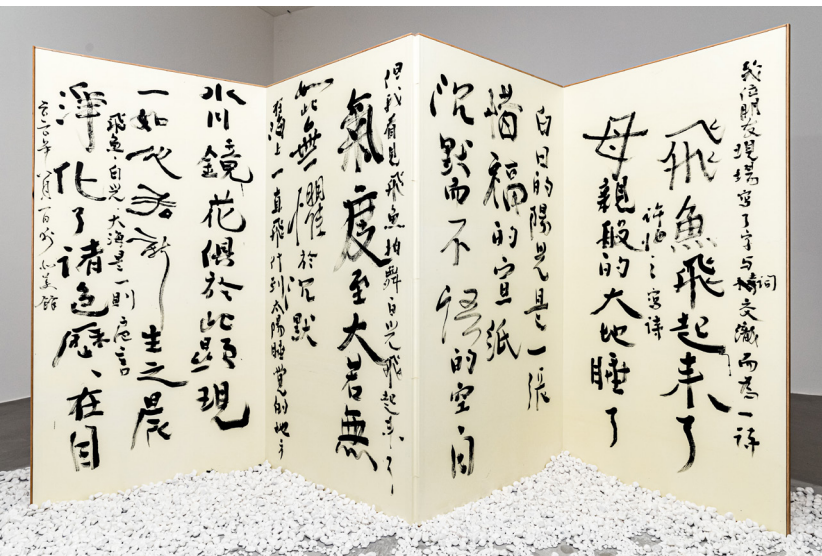 幾位朋友現場寫了字與詞交織而為一詩
飛魚飛起來了
許悔之寫詩
母親般的大地睡了
白日的陽光是一張
的宣紙
沉默而不的空白
但我看見飛魚拍舞白光飛起來了
氣度至大若無
如此無懼於沉默
海上一直飛行到太陽睡覺的地方
水月鏡花俱於此顯現
一如生之晨
飛魚、白光、大海是一則寓言
淨化了諸色歷、在目
年八月北美館